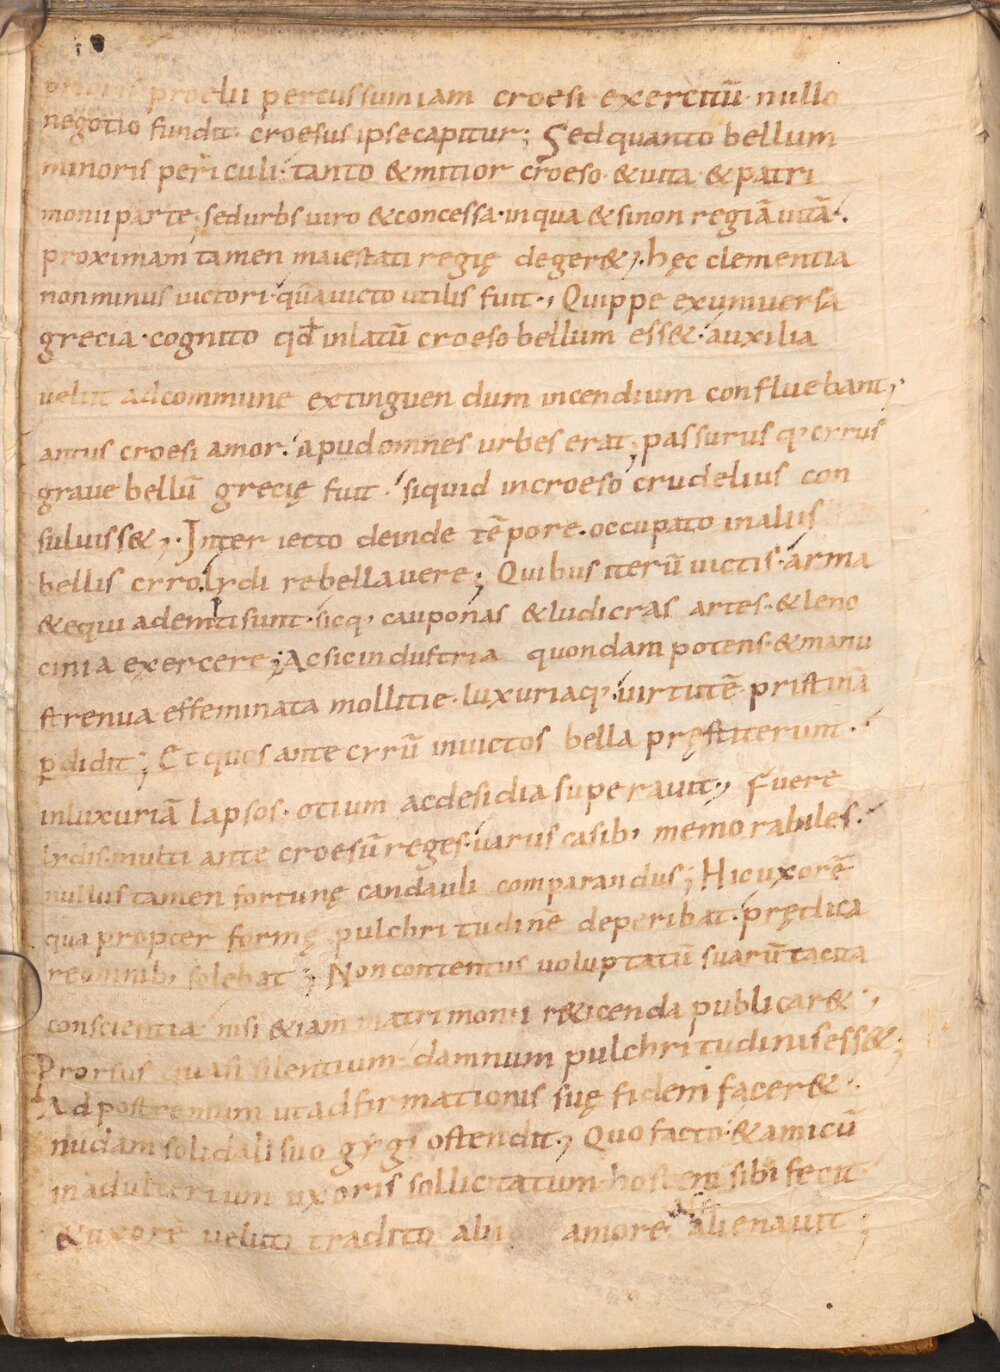 prioris proelii percussum iam croesi exercitū nullo
negotio fundit· croesus ipse capitur; Sed quanto bellum
minoris periculi· tanto & mitior croeso· & uita & patri
monii parte; sed urbs uiro & concessa· in qua & si non regiā uitā·
proximam tamen maiestati regię deger&,· hęc clementia
non minus uictori· quā uicto utilis fuit·, Quippe ex uniuersa
grecia· cognito qđ inlatū croeso bellum ess&· auxilia
uelut ad commune extinguendum incendium confluebant,·
antus croesi amor· apud omnes urbes erat; passurus q· cyrus
graue bellū grecię fuit· siquid in croeso crudelius con
suluiss&,· Interiecto deinde tēpore· occupato in aliis
bellis cyro lydi rebellauere; Quibus iterū uictis· arma
& equi ademti sunt· sicq, cauponas & ludicras artes·· & leno
cinia exercere; Ac sic industria quondam potens· & manu
strenua effeminata mollitie· luxuriaq, uirtutē pristinā
ꝑdidit; Et quos ante cyrū inuictos bella pręstiterunt·
in luxuriā lapsos· otium ac desidia superauit·, Fuere
lydis· multi ante croesū reges· uariis casib, memorabiles·
nullus tamen fortunę candauli comparandus; Hic uxorē
quā propter formę pulchritudinē deperibat· prędica
re omnib, solebat; Non contentus uoluptatū suarū tacita
conscientia· nisi & iam matrimonii r&icenda publicar&·,
Prorsus quasi silentium· damnum pulchritudinis ess&;
Ad postremum ut adfirmationis suę fidem facer&·
nudam solidali suo gygi ostendit·, Quo facto· & amicū
in adulterium uxoris sollicitatum· hostem sibi fecit
& uxorē ueluti tradito alii amore alienauit;